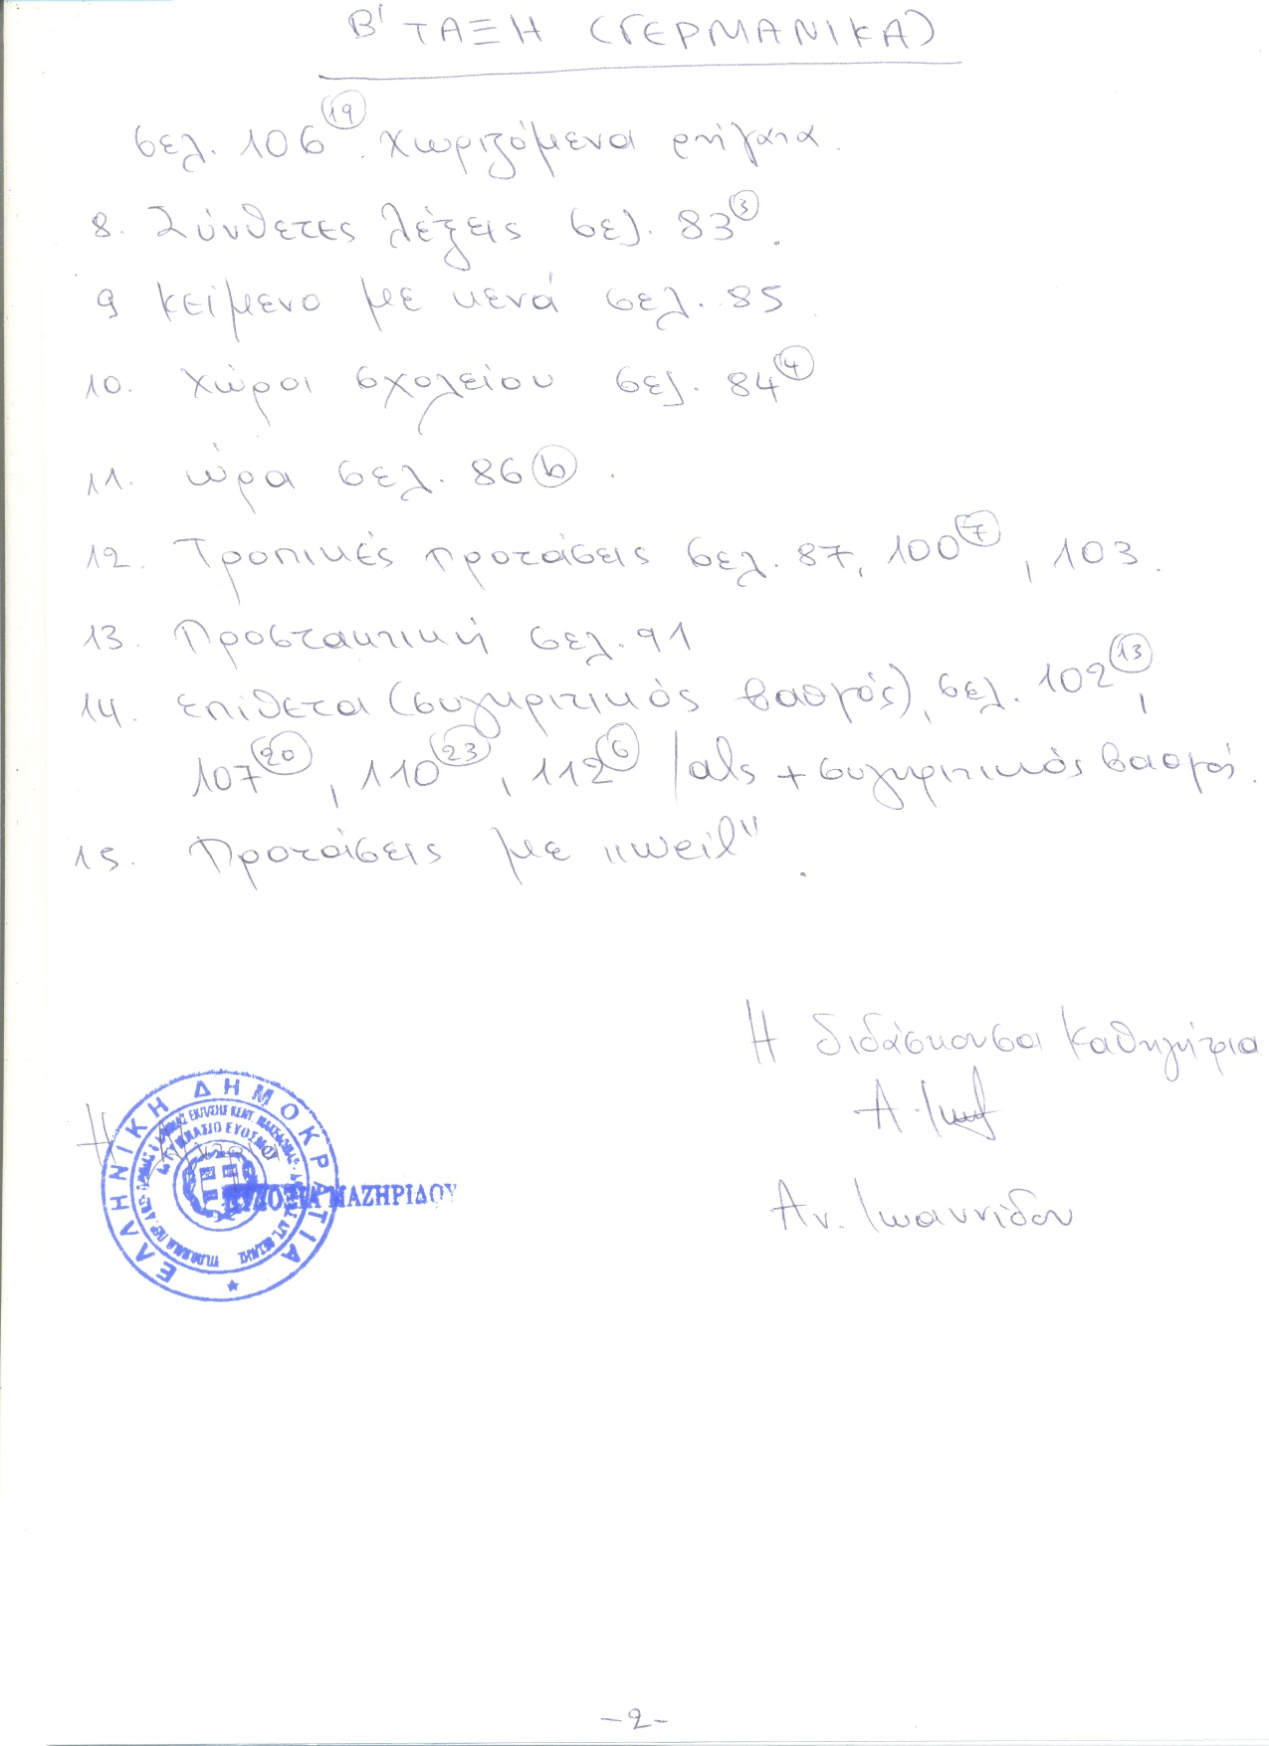 Β' ΤΑΞΗ (ΓΕΡΜΑΝΙΚΑ)
σελ. 106 (19). χωριζόμενα ρήματα.
8. Σύνθετες λέξεις σελ. 83 (3).
9 κείμενο με κενά σελ. 85
10. χώροι σχολείου σελ. 84 (4)
11. ώρα σελ. 86 (b).
12. Τροπικές προτάσεις σελ. 87, 100 (7), 103.
13. Προστακτική σελ. 91
14. επίθετα (συγκριτικός βαθμός), σελ. 102 (13),
107 (20), 110 (23), 112 (6) / als + συγκριτικός βαθμός.
15. Προτάσεις με „weil“.
Η διδάσκουσα καθηγήτρια
Αν. Ιωαννίδου
Η
ΕΛΛΗΝΙΚΗ ΔΗΜΟΚΡΑΤΙΑ
ΓΥΜΝΑΣΙΟ ΕΥΟΣΜΟΥ
ΜΑΖΗΡΙΔΟΥ
-2-